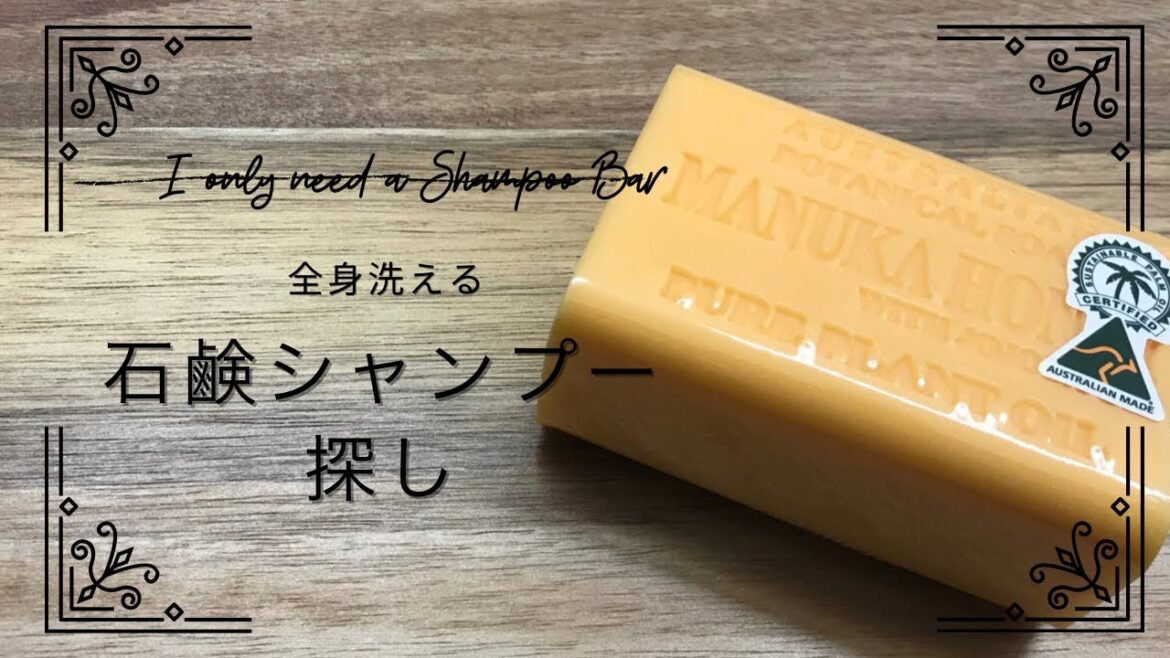 I only need a Shampoo Bar
全身洗える
石鹸シャンプー
探し
AUSTRALIAN
BOTANICAL SOAP
MANUKA HON
WITH
PURE PLANT OIL
SUSTAINABLE PALM OIL
CERTIFIED
AUSTRALIAN MADE